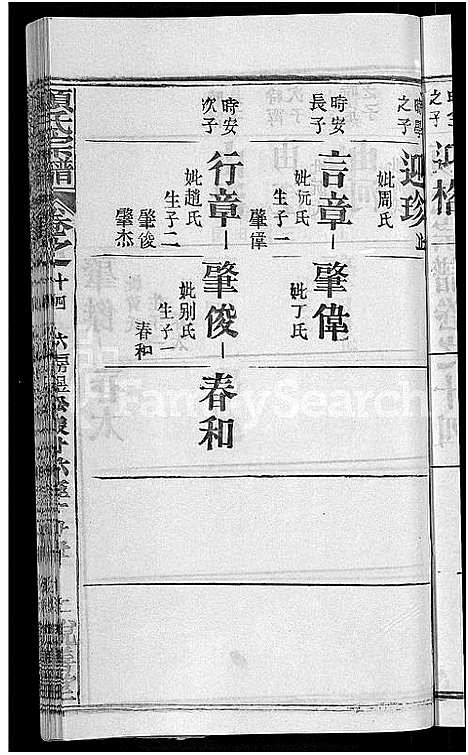 之子
迎格
之子
迎珍止
妣周氏
時安
長子
言章
妣阮氏
生子一
肇偉
肇偉
妣丁氏
時安
次子
行章
妣趙氏
生子二
肇俊
肇杰
肇俊
妣別氏
生子一
春和
春和
氏宗譜
卷之十四
FamilySearch